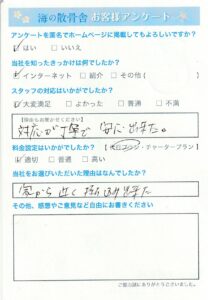 海の散骨舎 お客様アンケート
アンケートを匿名でホームページに掲載してもよろしいですか？
はい いいえ
当社を知ったきっかけは何でしたか？
インターネット 紹介 その他（ ）
スタッフの対応はいかがでしたか？
大変満足 よかった 普通 不満
【理由もお書きください】
対応が丁寧で 安心出来た。
料金設定はいかがでしたか？ 代行プラン・チャータープラン
適切 普通 高い
当社をお選びいただいた理由はなんでしたか？
家から近く 持込み出来た
その他、感想やご意見など自由にお書きください
ご協力誠にありがとうございました。